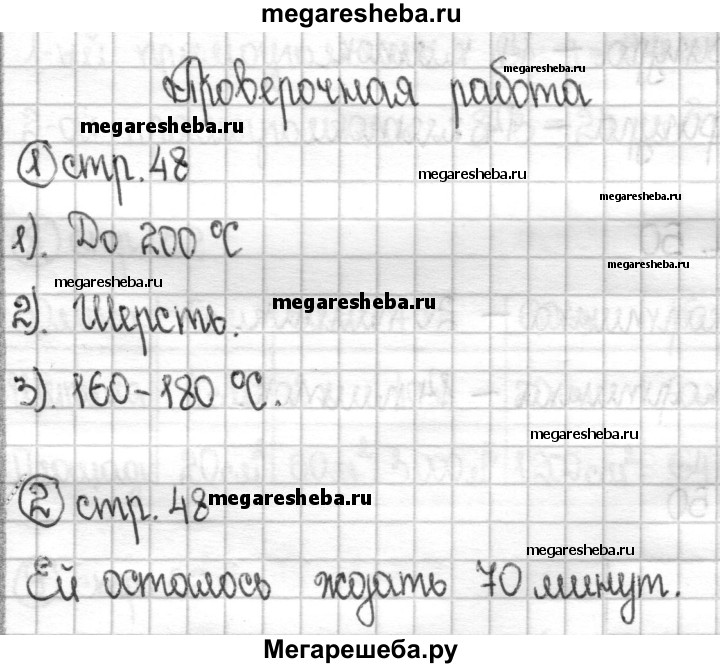 megaresheba.ru
Проверочная работа
megaresheba.ru
megaresheba.ru
① стр. 48
megaresheba.ru
megaresheba.ru
1). До 200 °C
megaresheba.ru
megaresheba.ru
megaresheba.ru
2). Шерсть.
3). 160-180 °C.
megaresheba.ru
② стр. 48
megaresheba.ru
megaresheba.ru
Ей осталось ждать 70 минут.
Мегарешеба.ру